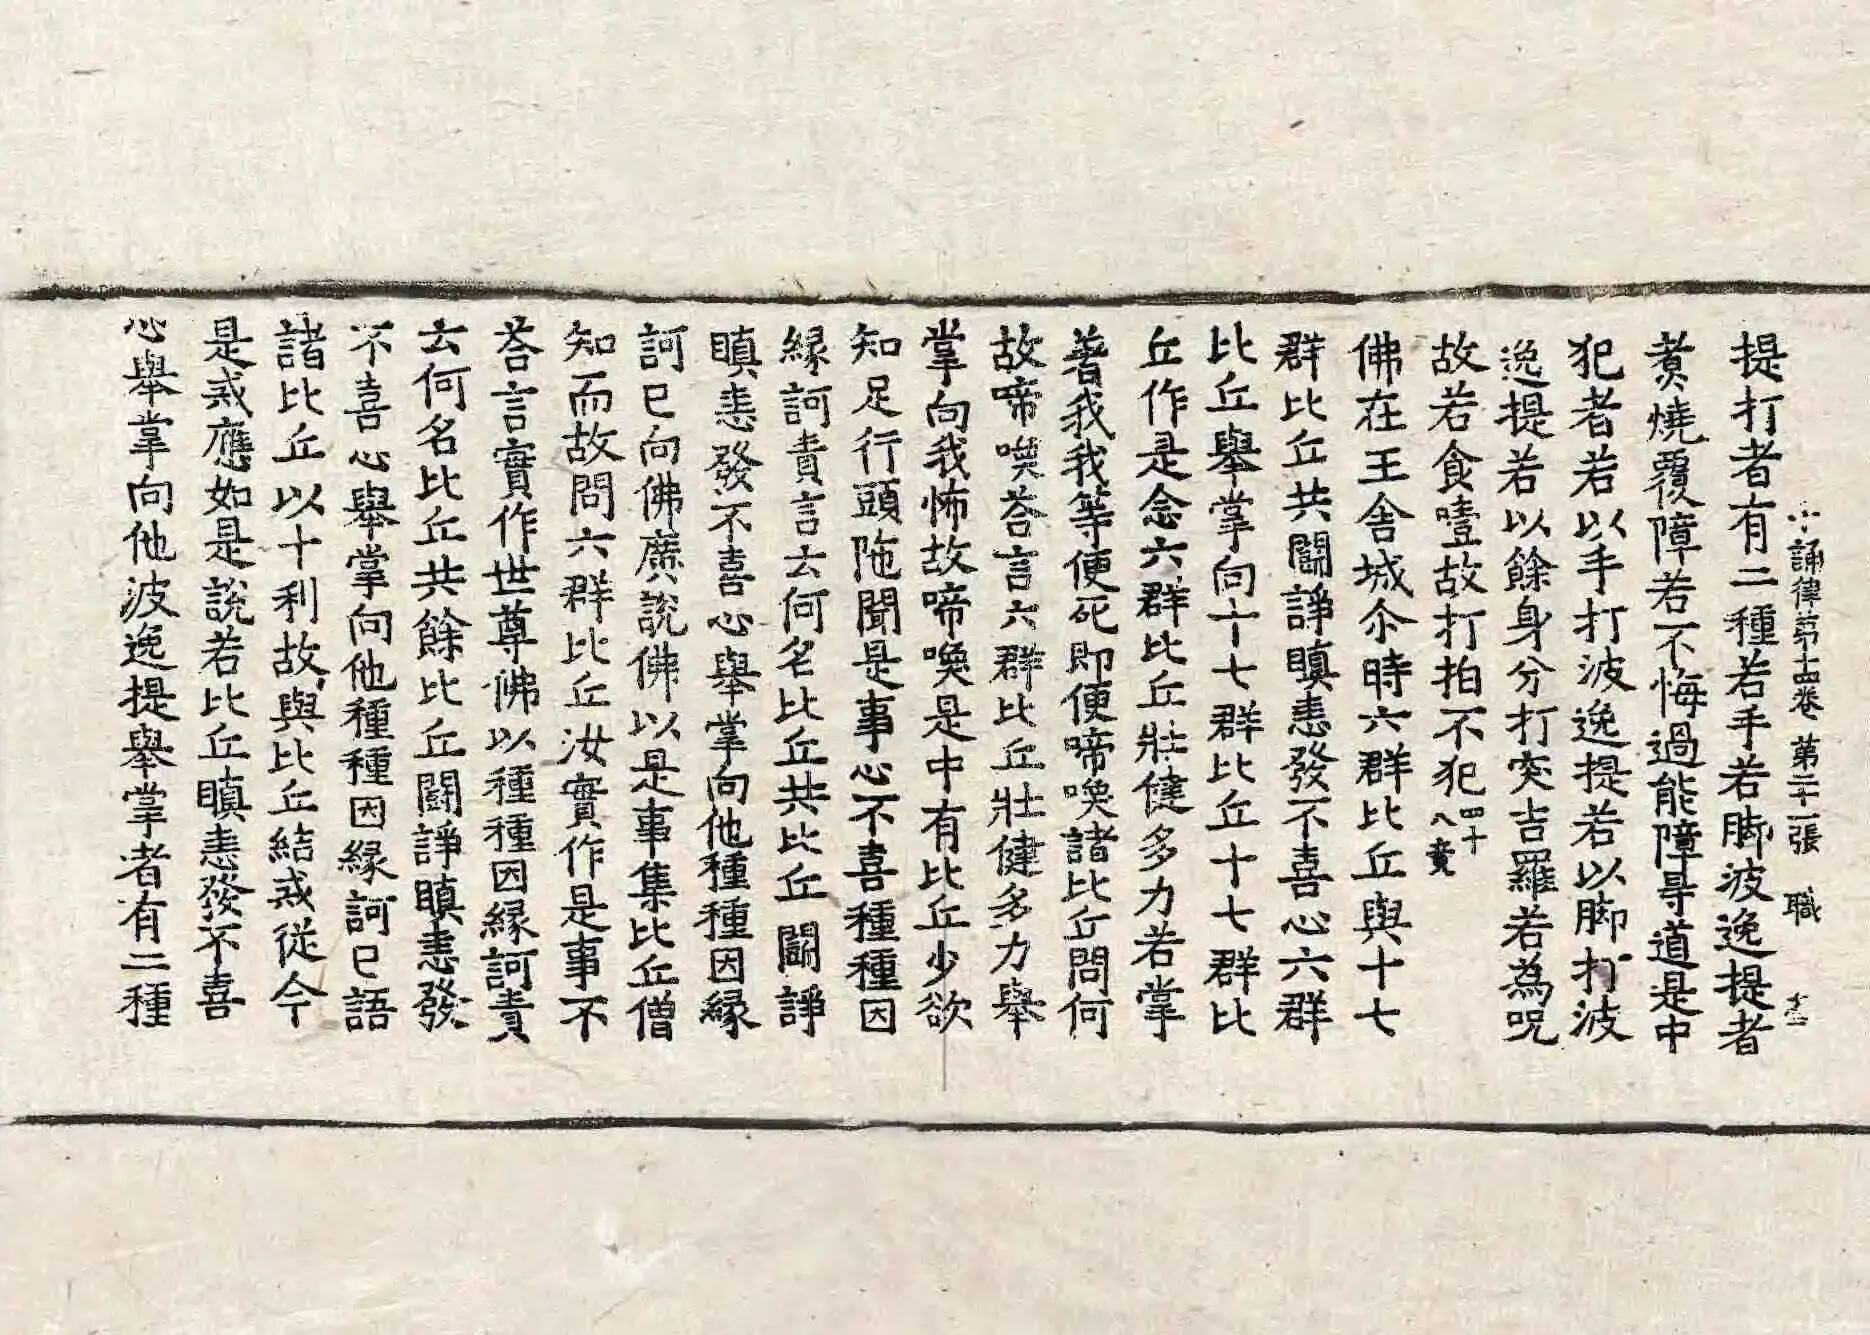 十誦律苐十四卷 第二十一張 職
提打者有二種若手若脚波逸提者
煑燒覆障若不悔過能障㝵道是中
犯者若以手打波逸提若以脚打波
逸提若以餘身分打突吉羅若為呪
故若食噎故打拍不犯 四十八竟
佛在王舍城尒時六群比丘與十七
群比丘共鬪諍瞋恚發不喜心六群
比丘舉掌向十七群比丘十七群比
丘作是念六群比丘壯健多力若掌
著我我等便死即便啼喚諸比丘問何
故啼喚荅言六群比丘壯健多力舉
掌向我怖故啼喚是中有比丘少欲
知足行頭陁聞是事心不喜種種因
緣訶責言云何名比丘共比丘鬪諍
瞋恚發不喜心舉掌向他種種因緣
訶已向佛廣說佛以是事集比丘僧
知而故問六群比丘汝實作是事不
荅言實作世尊佛以種種因緣訶責
云何名比丘共餘比丘鬪諍瞋恚發
不喜心舉掌向他種種因緣訶已語
諸比丘以十利故與比丘結戒從今
是戒應如是說若比丘瞋恚發不喜
心舉掌向他波逸提舉掌者有二種